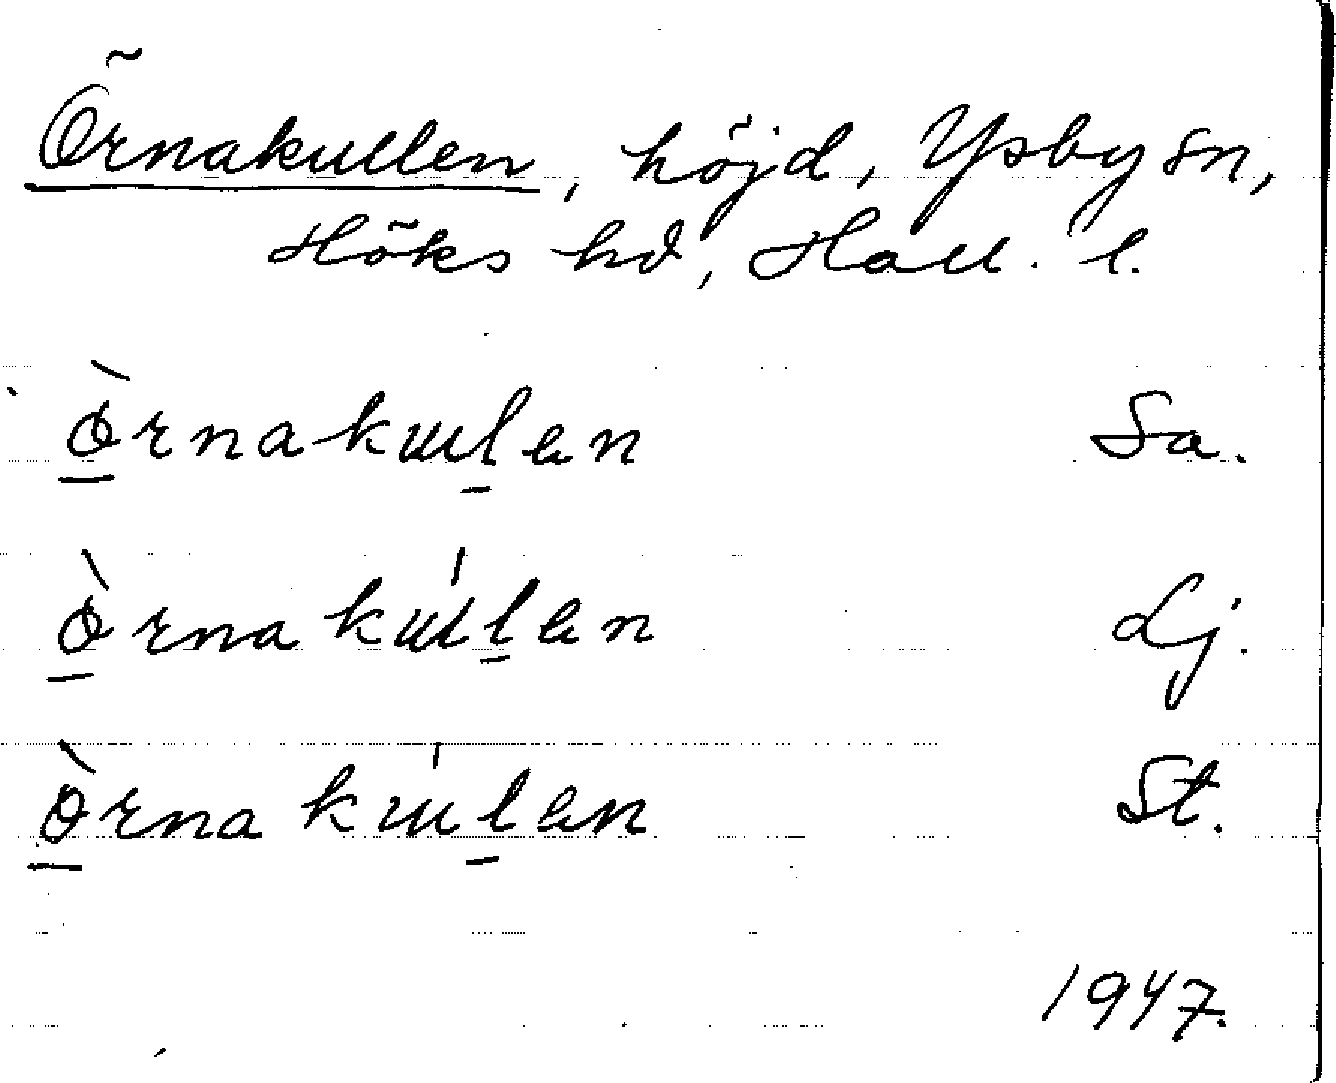 Örnakullen, höjd, Ysby sn,
Höks hd, Hall. l.
Òrnakɯlen Sa.
Òrnakɯ́len Lj.
Òrnakɯ́len St.
1947.